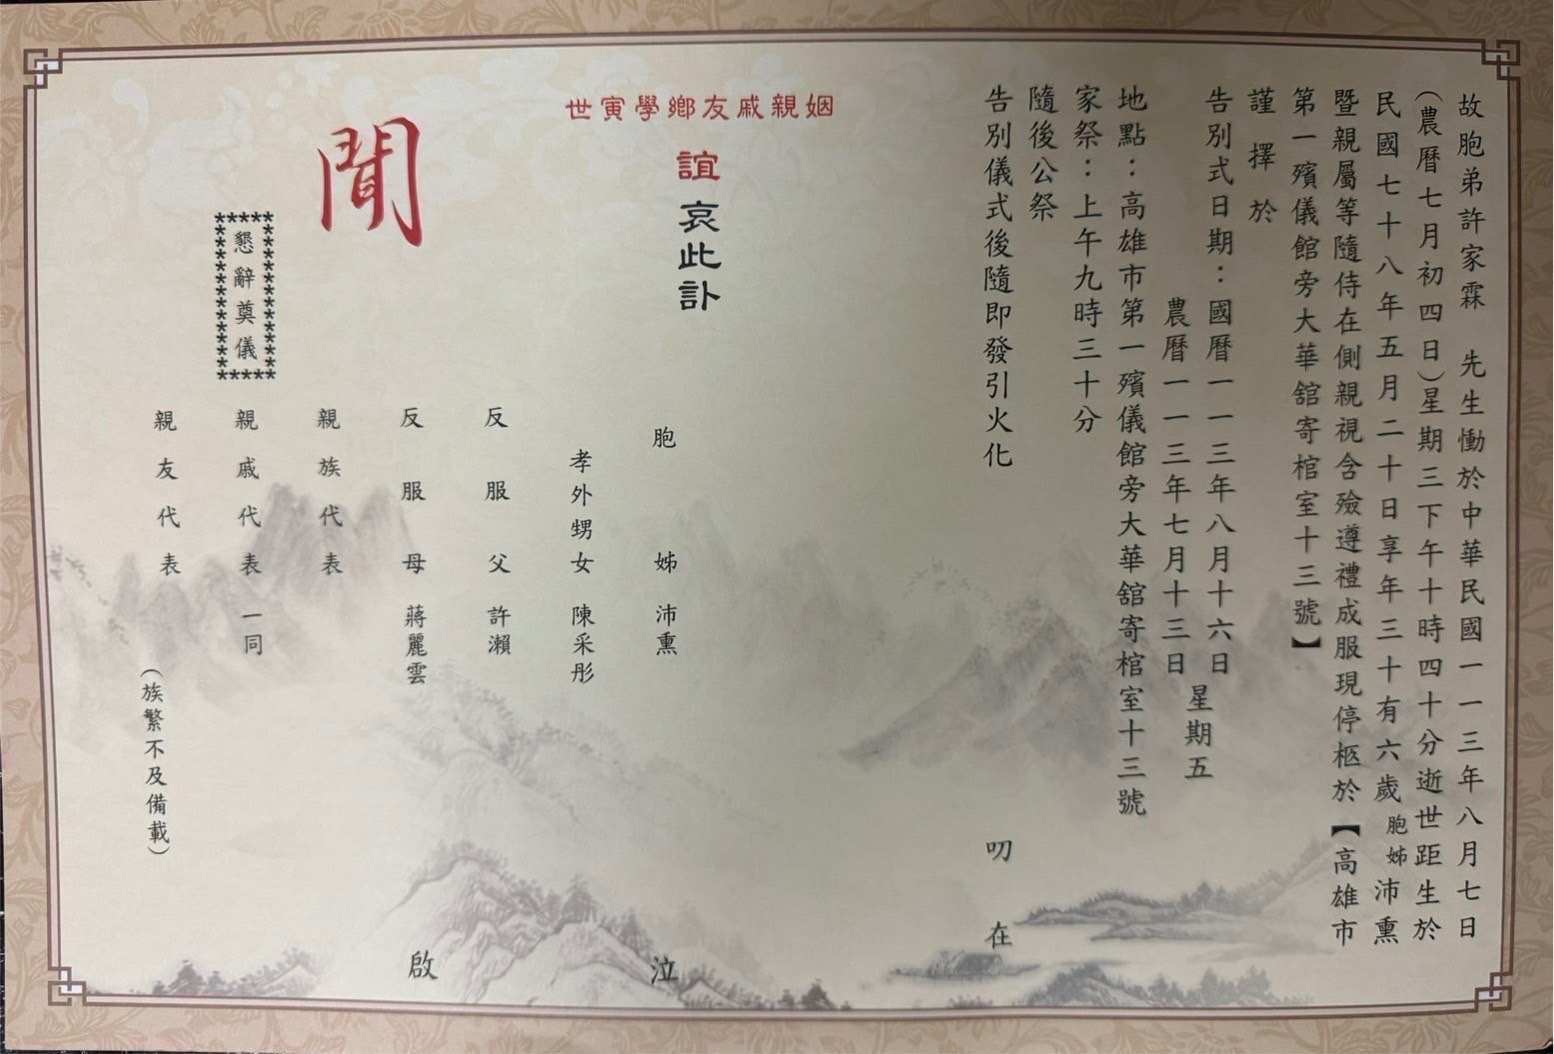 故胞弟許家霖　先生慟於中華民國一一三年八月七日
（農曆七月初四日）星期三下午十時四十分逝世距生於
民國七十八年五月二十日享年三十有六歲胞姊沛熏
暨親屬等隨侍在側親視含殮遵禮成服現停柩於【高雄市
第一殯儀館旁大華舘寄棺室十三號】
謹擇於
告別式日期：國曆一一三年八月十六日
農曆一一三年七月十三日
星期五
地點：高雄市第一殯儀館旁大華舘寄棺室十三號
家祭：上午九時三十分
隨後公祭
告別儀式後隨即發引火化
叨在
姻親戚友鄉學寅世
誼哀此訃
聞
胞姊　沛熏　泣
孝外甥女　陳采彤
反服父　許瀨
反服母　蔣麗雲　啟
親族代表
親戚代表　一同
親友代表
（族繁不及備載）
懇辭奠儀